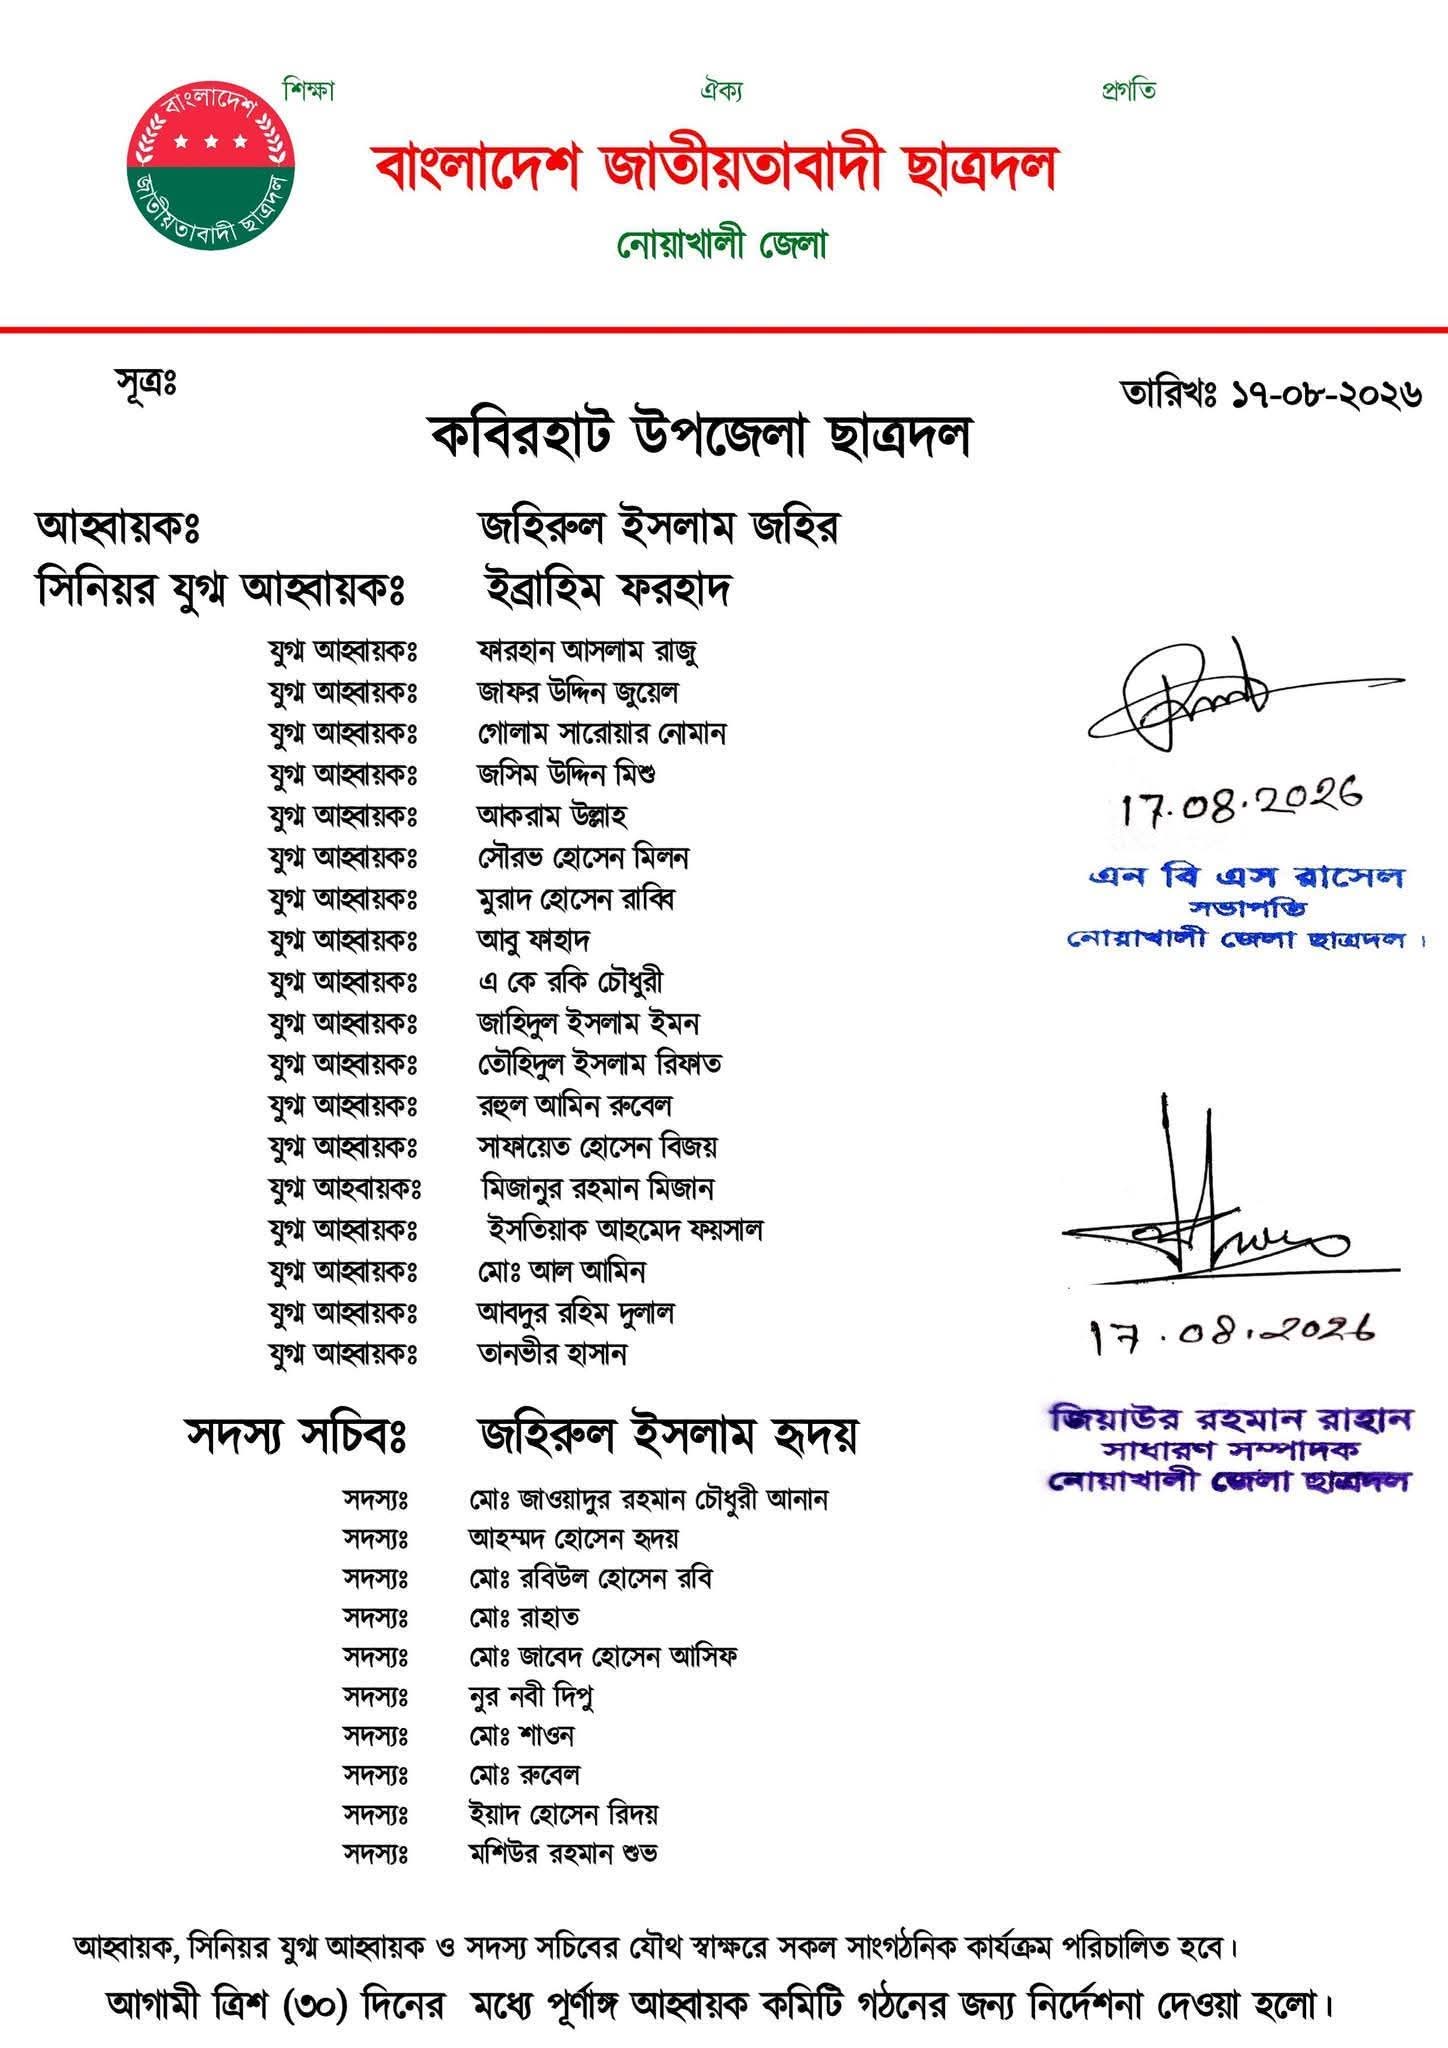 শিক্ষা ঐক্য প্রগতি
বাংলাদেশ
জাতীয়তাবাদী ছাত্রদল
বাংলাদেশ জাতীয়তাবাদী ছাত্রদল
নোয়াখালী জেলা
সূত্রঃ
তারিখঃ ১৭-০৮-২০২৬
কবিরহাট উপজেলা ছাত্রদল
আহ্বায়কঃ জহিরুল ইসলাম জহির
সিনিয়র যুগ্ম আহ্বায়কঃ ইব্রাহিম ফরহাদ
যুগ্ম আহ্বায়কঃ ফারহান আসলাম রাজু
যুগ্ম আহ্বায়কঃ জাফর উদ্দিন জুয়েল
যুগ্ম আহ্বায়কঃ গোলাম সারোয়ার নোমান
যুগ্ম আহ্বায়কঃ জসিম উদ্দিন মিশু
যুগ্ম আহ্বায়কঃ আকরাম উল্লাহ
যুগ্ম আহ্বায়কঃ সৌরভ হোসেন মিলন
যুগ্ম আহ্বায়কঃ মুরাদ হোসেন রাব্বি
যুগ্ম আহ্বায়কঃ আবু ফাহাদ
যুগ্ম আহ্বায়কঃ এ কে রকি চৌধুরী
যুগ্ম আহ্বায়কঃ জাহিদুল ইসলাম ইমন
যুগ্ম আহ্বায়কঃ তৌহিদুল ইসলাম রিফাত
যুগ্ম আহ্বায়কঃ রহুল আমিন রুবেল
যুগ্ম আহ্বায়কঃ সাফায়েত হোসেন বিজয়
যুগ্ম আহবায়কঃ মিজানুর রহমান মিজান
যুগ্ম আহ্বায়কঃ ইসতিয়াক আহমেদ ফয়সাল
যুগ্ম আহ্বায়কঃ মোঃ আল আমিন
যুগ্ম আহ্বায়কঃ আবদুর রহিম দুলাল
যুগ্ম আহ্বায়কঃ তানভীর হাসান
17.08.2026
এন বি এস রাসেল
সভাপতি
নোয়াখালী জেলা ছাত্রদল।
17.08.2026
জিয়াউর রহমান রাহান
সাধারণ সম্পাদক
নোয়াখালী জেলা ছাত্রদল
সদস্য সচিবঃ জহিরুল ইসলাম হৃদয়
সদস্যঃ মোঃ জাওয়াদুর রহমান চৌধুরী আনান
সদস্যঃ আহম্মদ হোসেন হৃদয়
সদস্যঃ মোঃ রবিউল হোসেন রবি
সদস্যঃ মোঃ রাহাত
সদস্যঃ মোঃ জাবেদ হোসেন আসিফ
সদস্যঃ নুর নবী দিপু
সদস্যঃ মোঃ শাওন
সদস্যঃ মোঃ রুবেল
সদস্যঃ ইয়াদ হোসেন রিদয়
সদস্যঃ মশিউর রহমান শুভ
আহ্বায়ক, সিনিয়র যুগ্ম আহ্বায়ক ও সদস্য সচিবের যৌথ স্বাক্ষরে সকল সাংগঠনিক কার্যক্রম পরিচালিত হবে।
আগামী ত্রিশ (৩০) দিনের মধ্যে পূর্ণাঙ্গ আহ্বায়ক কমিটি গঠনের জন্য নির্দেশনা দেওয়া হলো।